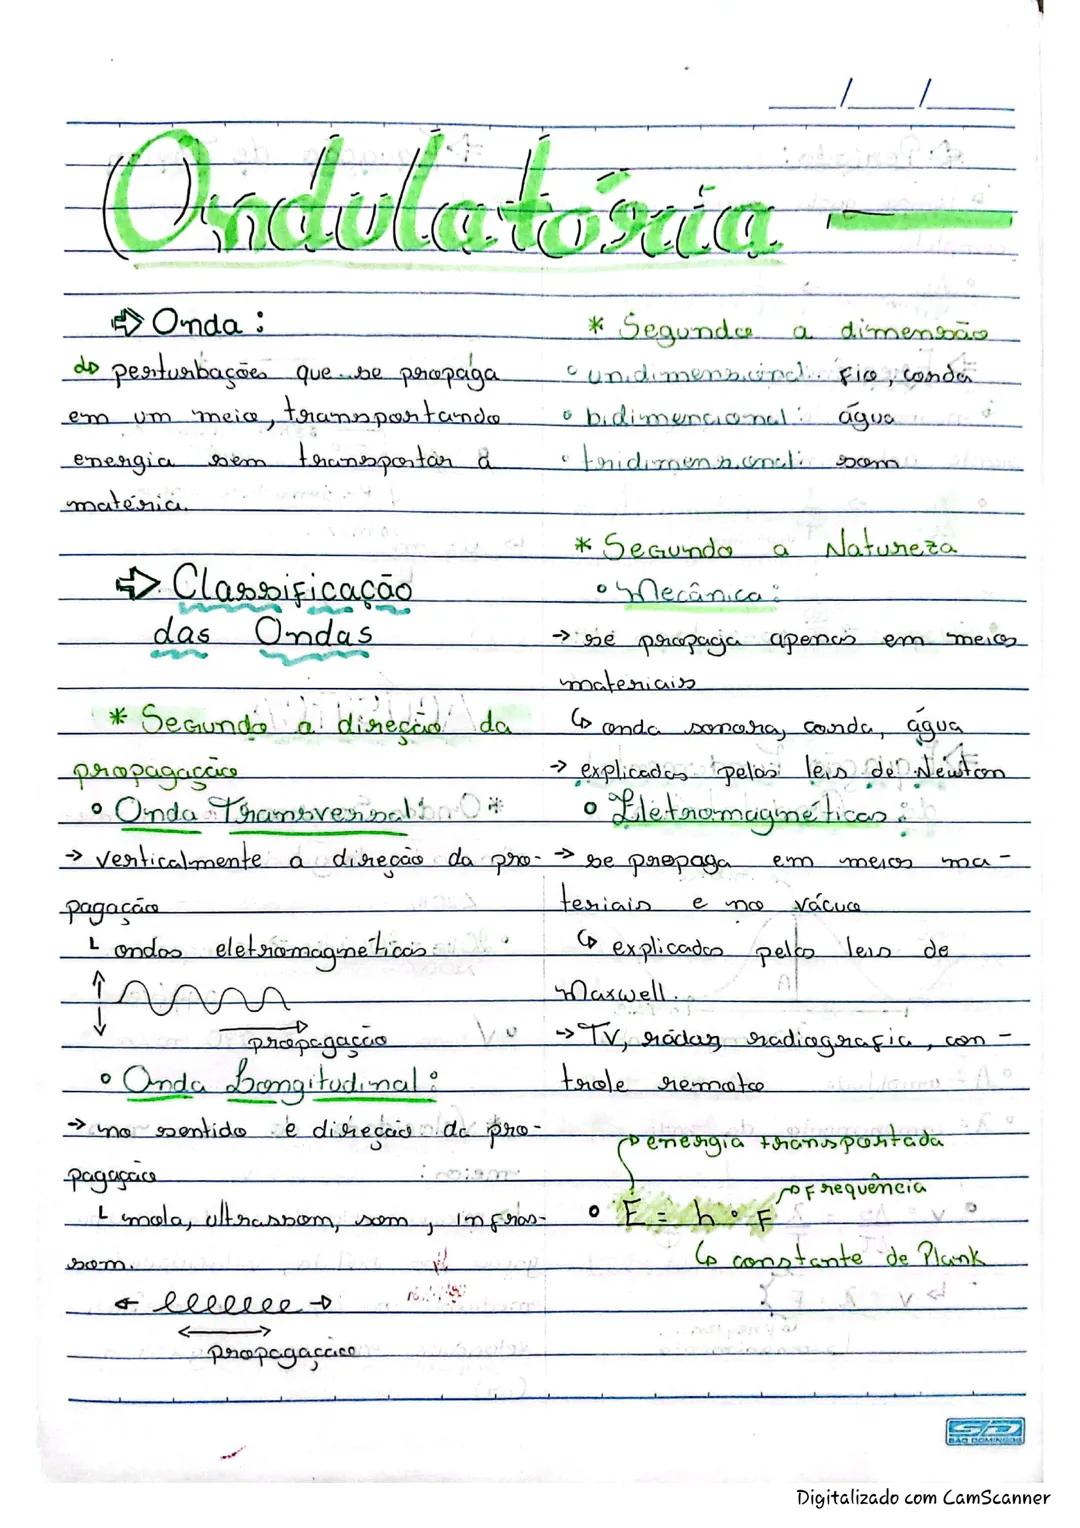 Ondulatória
⇨ Onda:
↳ perturbações que se propaga
em um meio, transportando
energia sem transportar a
matéria.
⇨ Classificação
das Ondas
* Segundo a direção da
propagação
• Onda Transversal:
→ verticalmente a direção da pro-
pagação
L ondas eletromagnéticas.
propagação
• Onda Longitudinal:
→ no sentido e direção da pro-
pagação
L mola, ultrassom, som, infras-
som.
propagação
* Segundo a dimensão
• unidimensional: fio, corda
• bidimencional: água
• tridimensional: som
* Segundo a Natureza
• Mecânica:
→ se propaga apenas em meios
materiais
↳ onda sonora, corda, água
→ explicadas pelas leis de Newton
• Eletromagnéticas:
→ se propaga em meios ma-
teriais e no vácuo
↳ explicadas pelas leis de
Maxwell.
→ TV, radar, radiografia, con-
trole remoto
energia transportada
frequência
• E = h • F
↳ constante de Plank
SD
SÃO DOMINGOS
Digitalizado com CamScanner